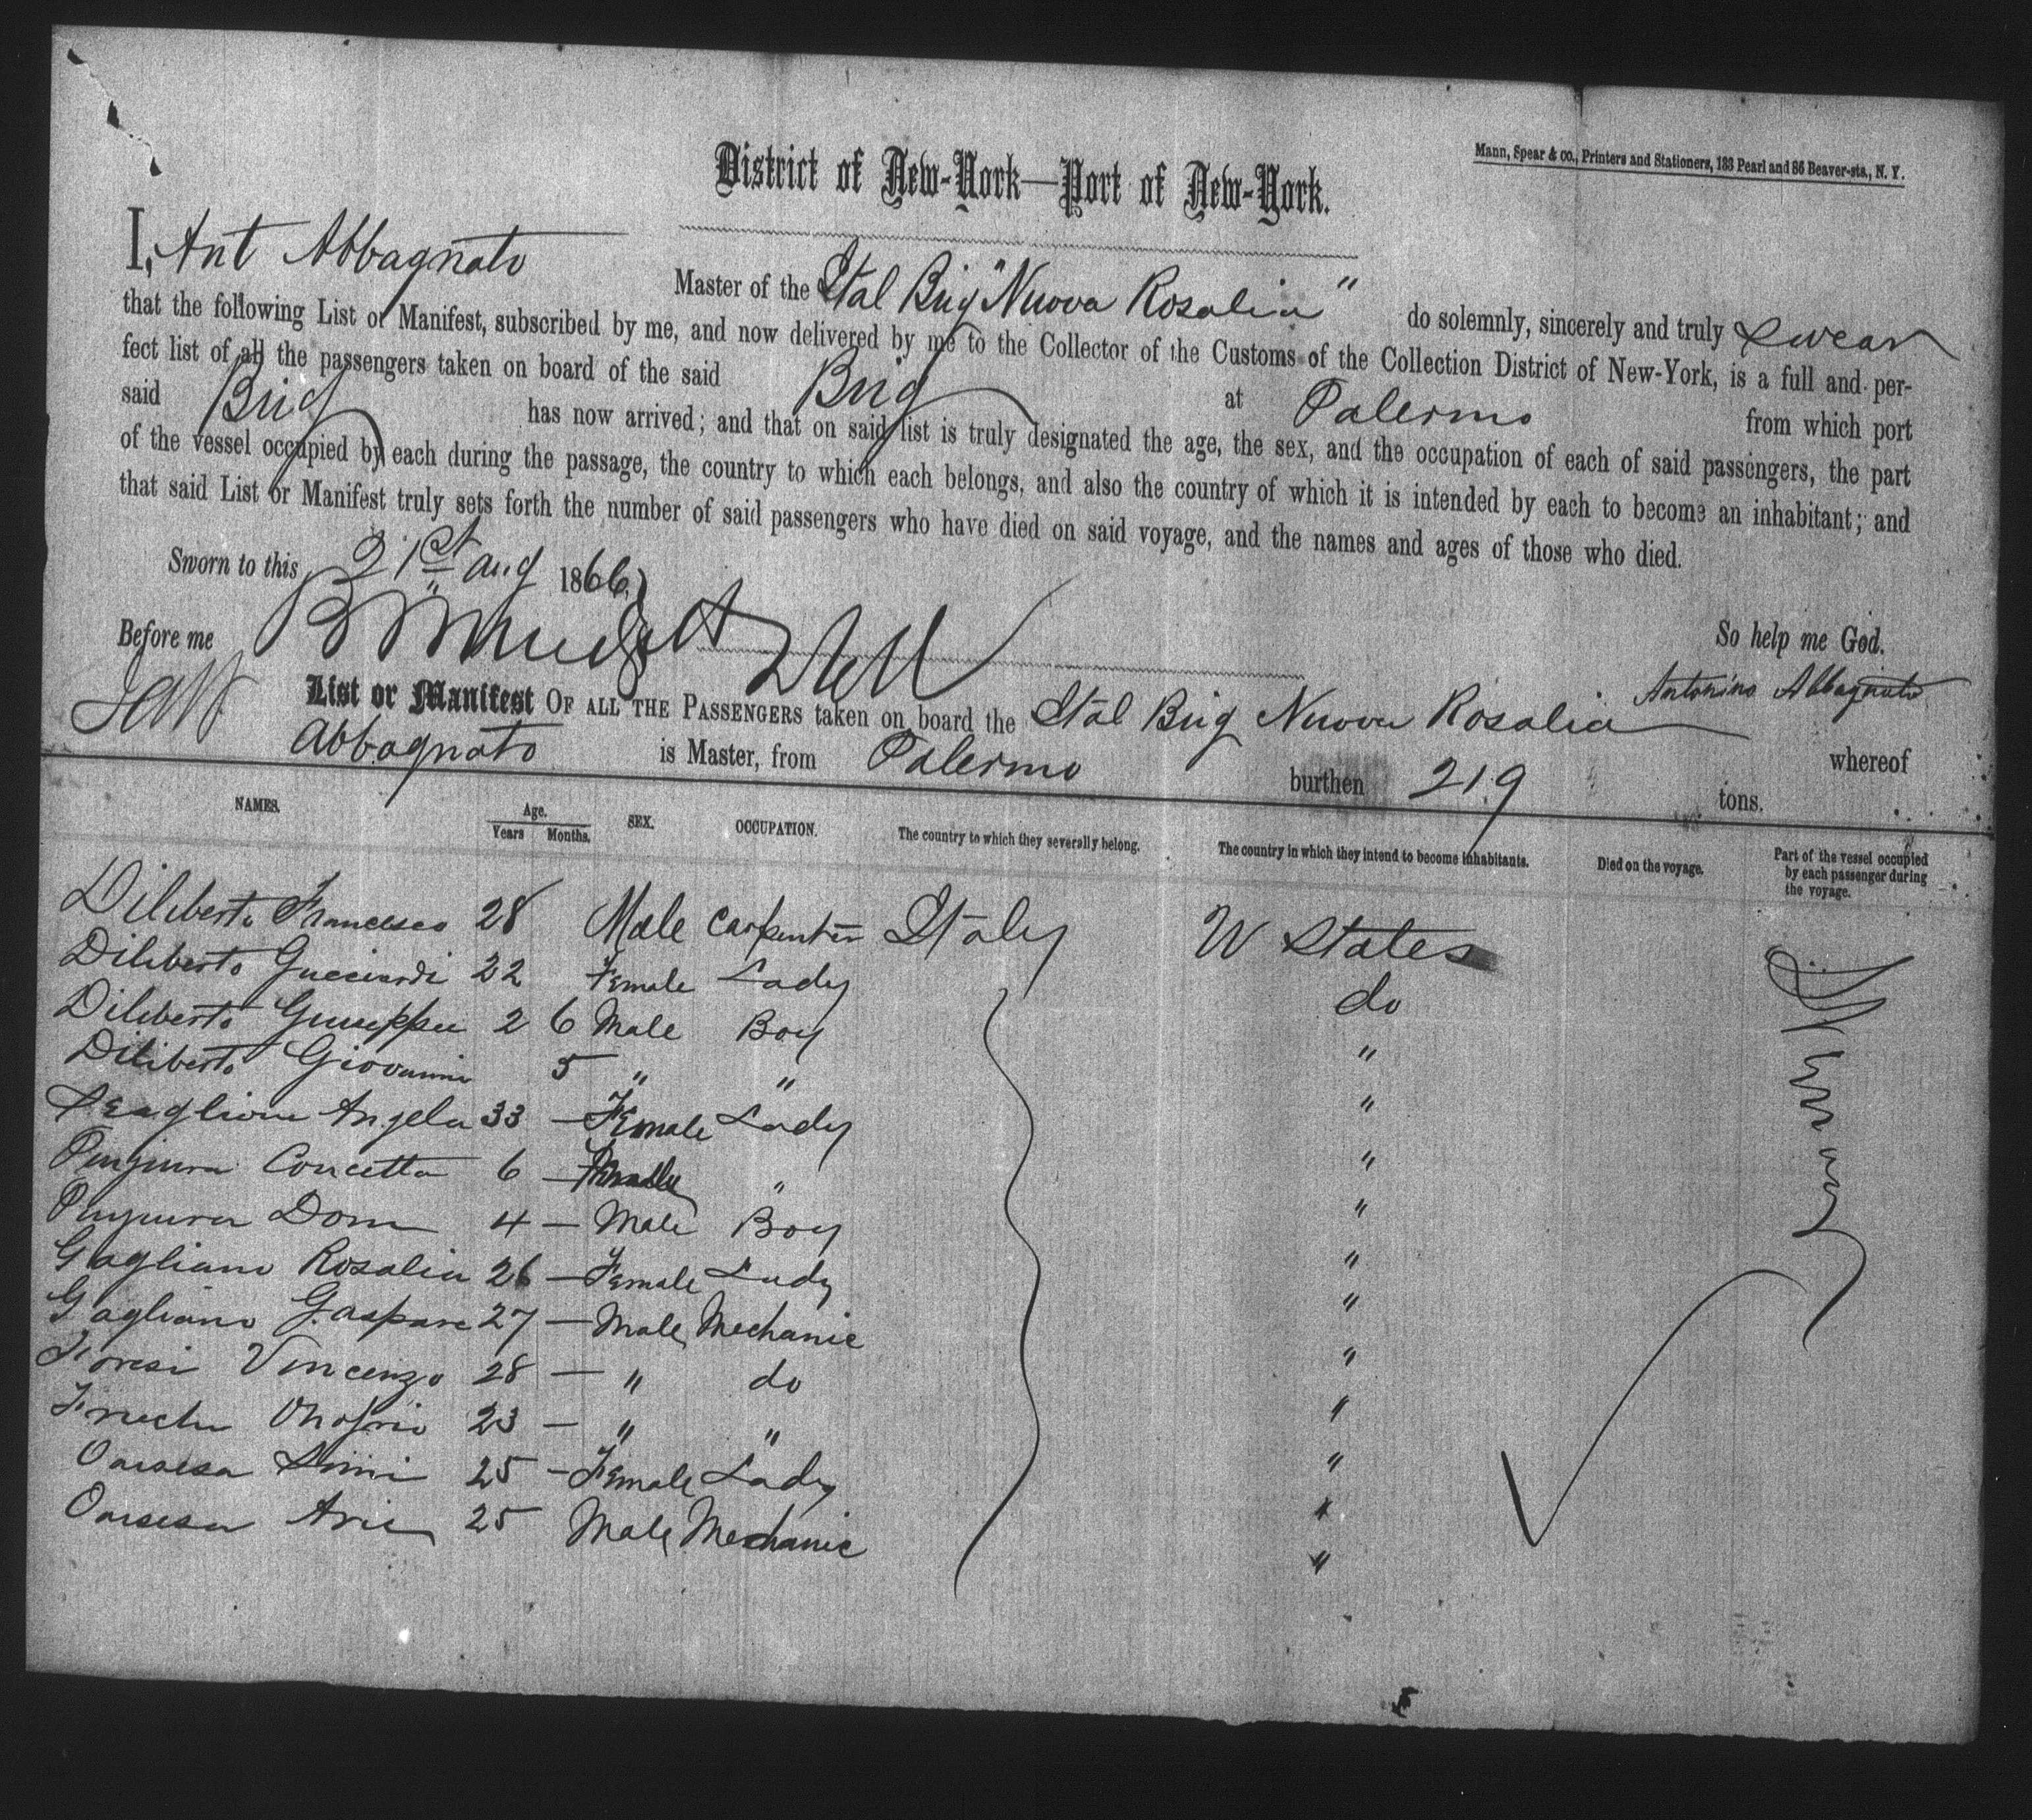 Mann, Spear & co., Printers and Stationers, 183 Pearl and 86 Beaver-sts., N. Y.
District of New-York—Port of New-York.
I, Ant Abbagnato Master of the Ital Brig "Nuova Rosalia" do solemnly, sincerely and truly swear
that the following List or Manifest, subscribed by me, and now delivered by me to the Collector of the Customs of the Collection District of New-York, is a full and per-
fect list of all the passengers taken on board of the said Brig at Palermo from which port
said Brig has now arrived; and that on said list is truly designated the age, the sex, and the occupation of each of said passengers, the part
of the vessel occupied by each during the passage, the country to which each belongs, and also the country of which it is intended by each to become an inhabitant; and
that said List or Manifest truly sets forth the number of said passengers who have died on said voyage, and the names and ages of those who died.
Sworn to this 21st Aug 1866,
So help me God.
Before me
Antonino Abbagnato
List or Manifest OF ALL THE PASSENGERS taken on board the Ital Brig Nuova Rosalia whereof
Abbagnato is Master, from Palermo burthen 219 tons.
NAMES. Age. Years Months. SEX. OCCUPATION. The country to which they severally belong. The country in which they intend to become inhabitants. Died on the voyage. Part of the vessel occupied by each passenger during the voyage.
Diliberto Francesco 28 Male Carpenter Italy U States
Diliberto 22 Female Lady do
Diliberto 2 6 Male Boy "
Diliberto Giovanni 5 " " "
Angela 33 — Female Lady "
Concetta 6 — Female " "
Dom 4 — Male Boy "
Gagliano Rosalia 26 — Female Lady "
Gagliano Gaspare 27 — Male Mechanic "
Vincenzo 28 — " do "
Onofrio 23 — " " "
25 — Female Lady "
25 Male Mechanic "